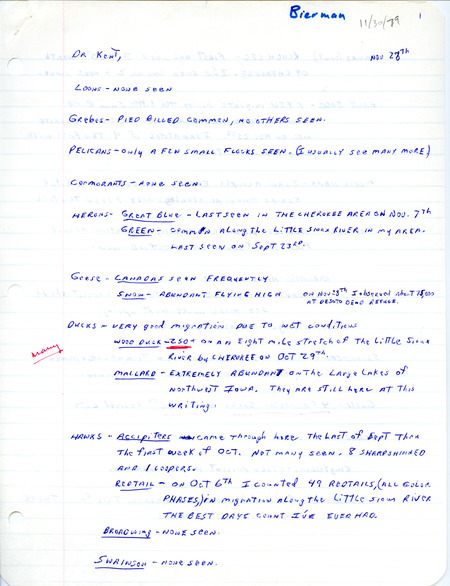 Bierman 11/30/79 1
Dr Kent, Nov 27th
Loons - none seen
Grebes - Pied Billed common, no others seen.
Pelicans - only a few small flocks seen. (I usually see many more.)
Cormorants - none seen.
Herons - Great Blue - last seen in the Cherokee area on Nov. 7th
Green - common along the Little Sioux River in my area.
last seen on Sept 23rd.
Geese - Canadas seen frequently
Snow - abundant flying high on Nov 18th I observed about 75,000
at DeSoto Bend Refuge.
Ducks - very good migration due to wet conditions
many Wood duck - 250+ on an eight mile stretch of the Little Sioux
River by Cherokee on Oct 29th.
Mallard - extremely abundant on the large lakes of
Northwest Iowa. They are still here at this
writing.
Hawks - Accipiters came through here the last of Sept thru
the first week of Oct. Not many seen. 8 sharpshinned
and 1 coopers.
Redtail - on Oct 6th I counted 49 redtails, (all color
phases,) in migration along the Little Sioux River
the best days count I've ever had.
Broadwing - none seen.
Swainson - none seen.